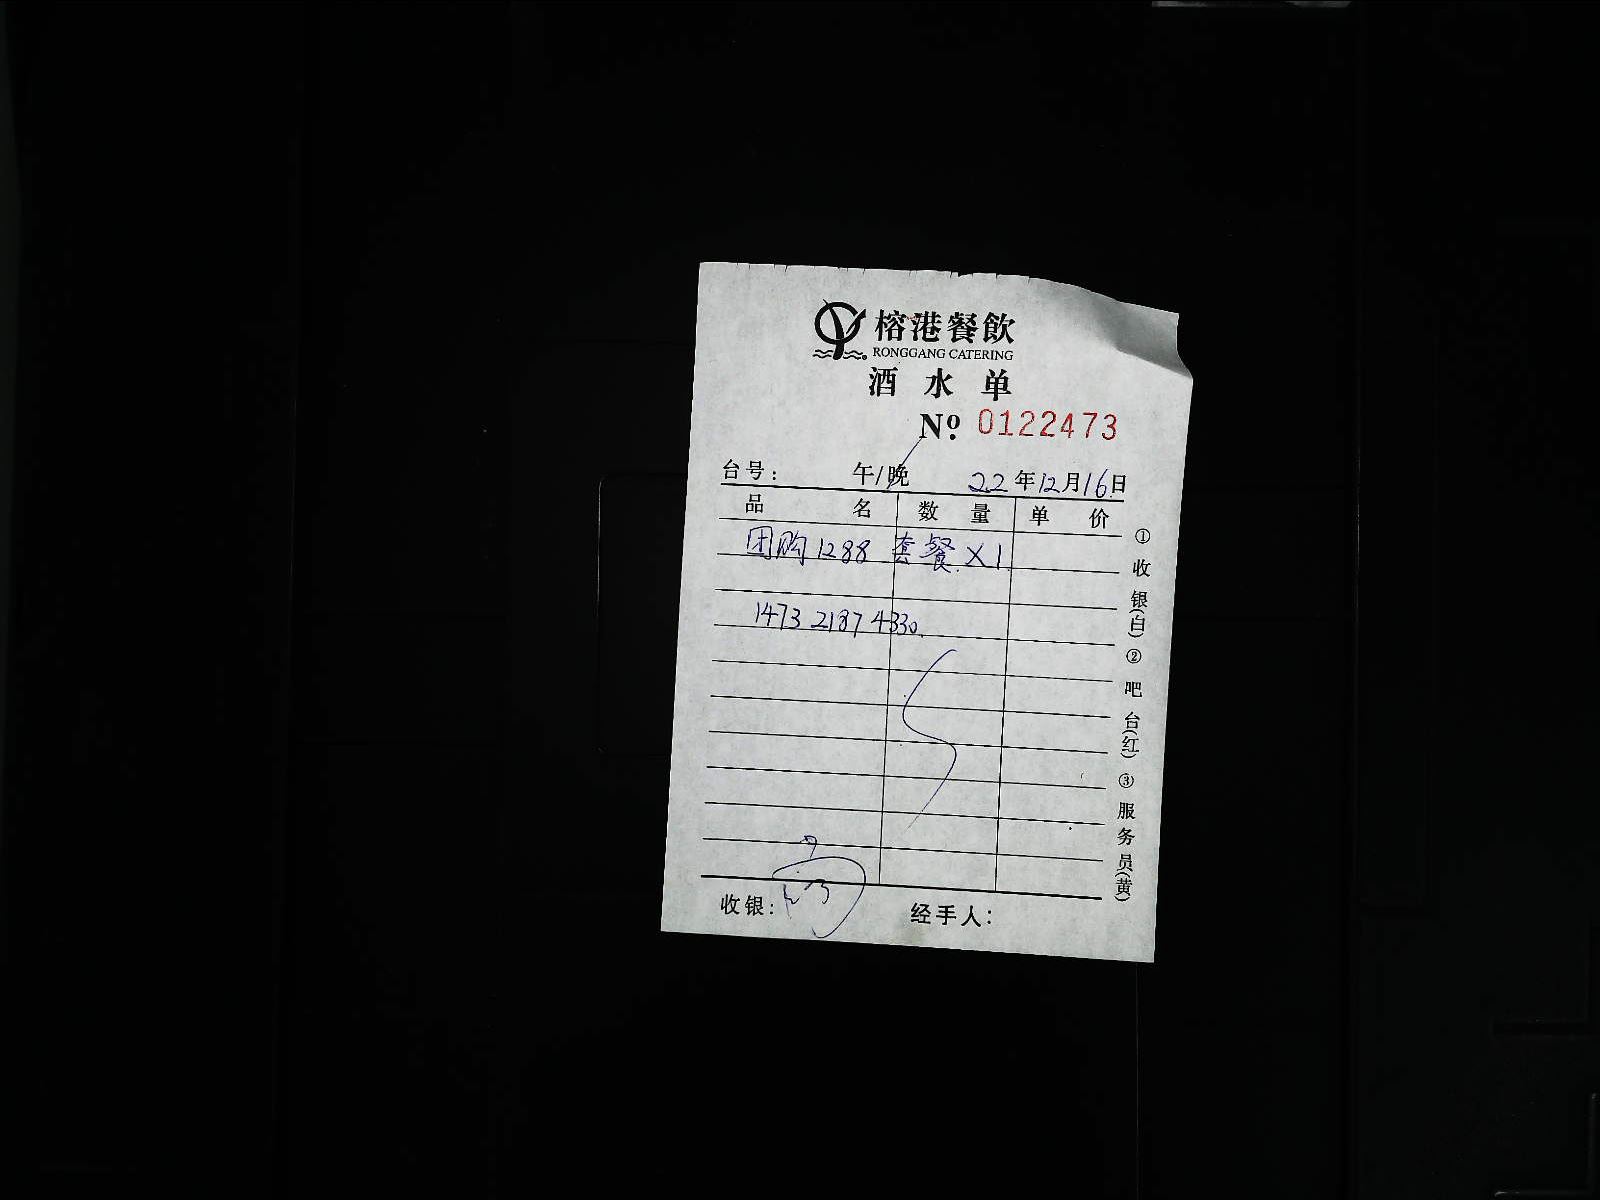 榕港餐飲
RONGGANG CATERING
酒水单
Nº 0122473
台号: 午/晚 22年12月16日
品名 数量 单价
团购1288 套餐 X1
1473 2187 4330
收银: 经手人:
①收银(白) ②吧台(红) ③服务员(黄)